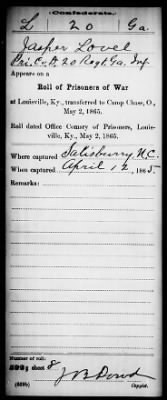 Confederate.
L 20 Ga.
Jasper Lovel
Pri. Co. A. 20 Regt. Ga. Inf.
Appears on a
Roll of Prisoners of War
at Louisville, Ky., transferred to Camp Chase, O.,
May 2, 1865.
Roll dated Office Comsry of Prisoners, Louisville, Ky., May 2, 1865.
Where captured Salisbury, N.C.
When captured April 12, 1865
Remarks:
Number of roll:
sheet 8
J B Dowd
Copyist.